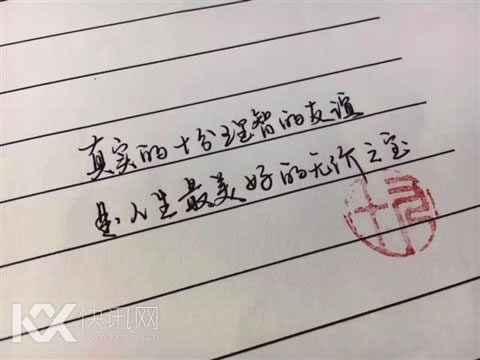 真实的十分理智的友谊
是人生最美好的无价之宝
KX 快讯网
www.kxnews.cn